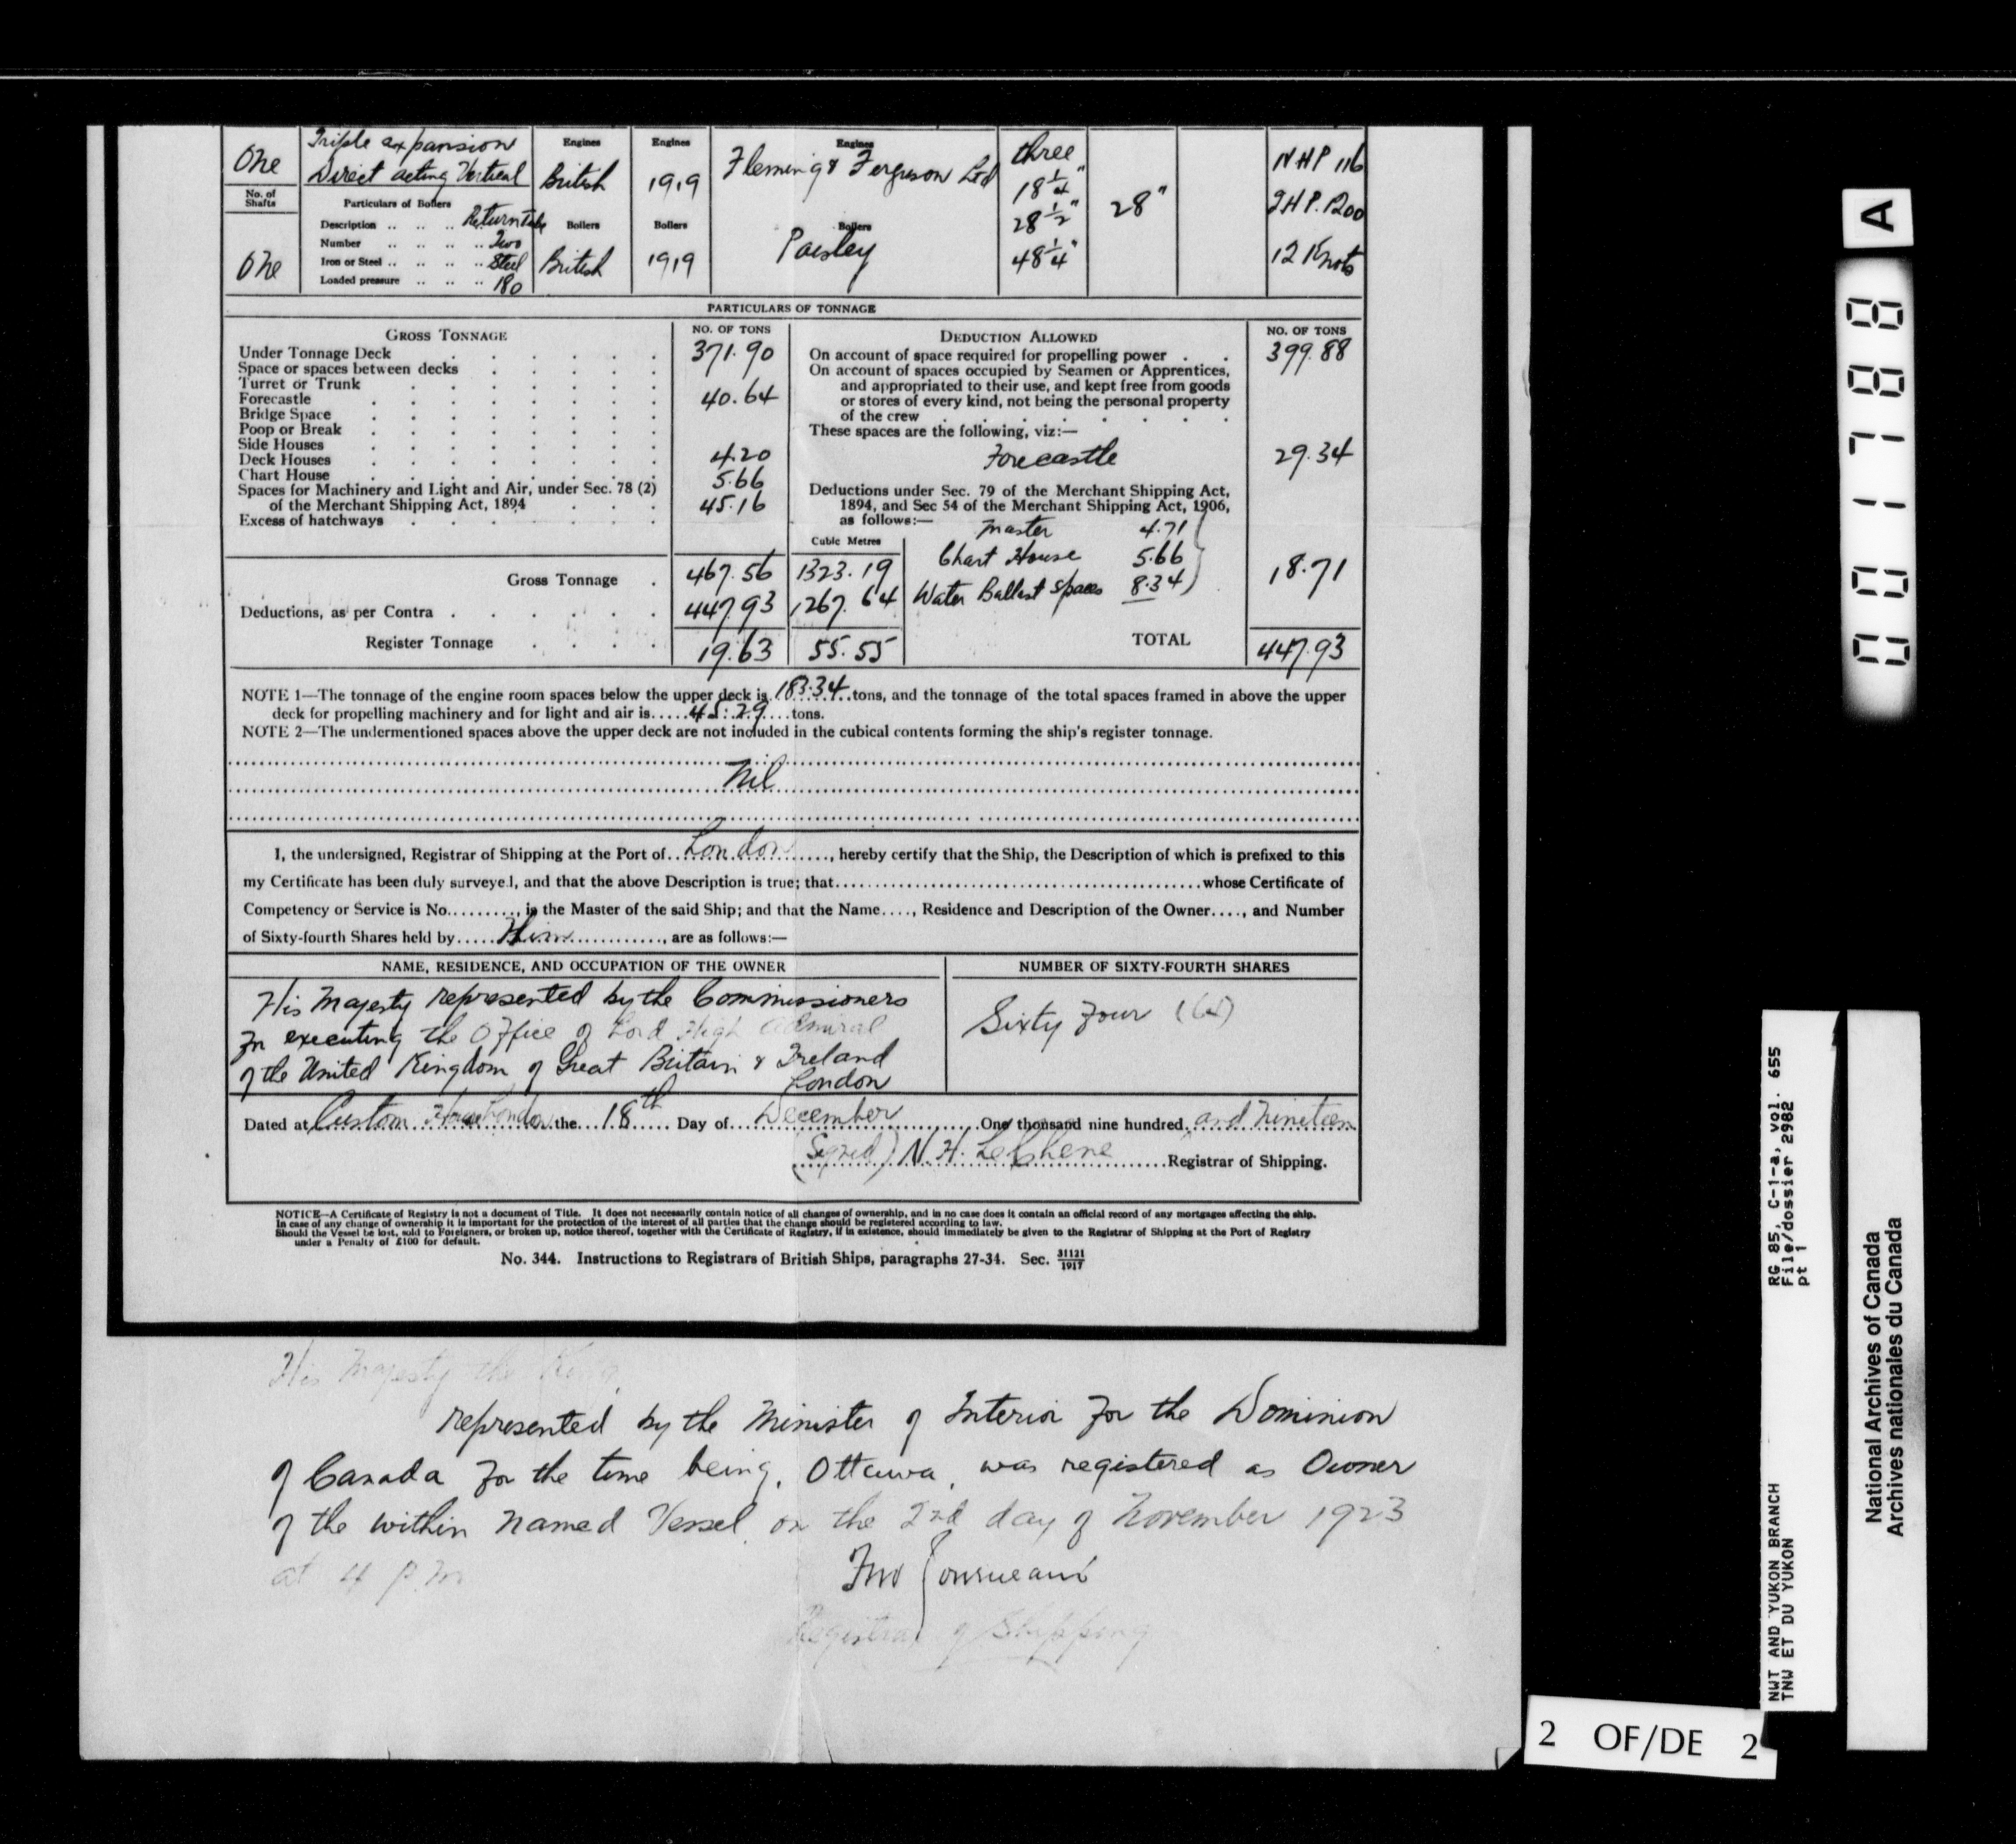 One
Triple expansion
Direct acting Vertical
Engines
British
Engines
1919
Engines
Fleming & Ferguson Ltd
three
18 1/4"
28 1/2"
48 1/4"
28"
NHP 116
IHP. 1200
12 Knots
No. of
Shafts
One
Particulars of Boilers
Description .. .. .. Return Tube
Number .. .. .. .. Two
Iron or Steel .. .. .. .. Steel
Loaded pressure .. .. .. 180
Boilers
British
Boilers
1919
Boilers
Paisley
PARTICULARS OF TONNAGE
GROSS TONNAGE
NO. OF TONS
Under Tonnage Deck 371.90
Space or spaces between decks
Turret or Trunk
Forecastle 40.64
Bridge Space
Poop or Break
Side Houses
Deck Houses 4.20
Chart House 5.66
Spaces for Machinery and Light and Air, under Sec. 78 (2)
of the Merchant Shipping Act, 1894 45.16
Excess of hatchways
Cubic Metres
Gross Tonnage 467.56 1323.19
Deductions, as per Contra 447.93 1267.64
Register Tonnage 19.63 55.55
DEDUCTION ALLOWED
NO. OF TONS
On account of space required for propelling power 399.88
On account of spaces occupied by Seamen or Apprentices,
and appropriated to their use, and kept free from goods
or stores of every kind, not being the personal property
of the crew
These spaces are the following, viz:—
Forecastle 29.34
Deductions under Sec. 79 of the Merchant Shipping Act,
1894, and Sec 54 of the Merchant Shipping Act, 1906,
as follows:—
Master 4.71
Chart House 5.66
Water Ballast spaces 8.34
18.71
TOTAL 447.93
NOTE 1—The tonnage of the engine room spaces below the upper deck is 183.34 tons, and the tonnage of the total spaces framed in above the upper
deck for propelling machinery and for light and air is.....45.29....tons.
NOTE 2—The undermentioned spaces above the upper deck are not included in the cubical contents forming the ship's register tonnage.
Nil
I, the undersigned, Registrar of Shipping at the Port of London, hereby certify that the Ship, the Description of which is prefixed to this
my Certificate has been duly surveyed, and that the above Description is true; that.......... whose Certificate of
Competency or Service is No........., is the Master of the said Ship; and that the Name...., Residence and Description of the Owner...., and Number
of Sixty-fourth Shares held by.....Him............, are as follows:—
NAME, RESIDENCE, AND OCCUPATION OF THE OWNER
NUMBER OF SIXTY-FOURTH SHARES
His Majesty represented by the Commissioners
for executing the Office of Lord High Admiral
of the United Kingdom of Great Britain & Ireland
London
Sixty Four (64)
Dated at Custom House London the 18th Day of December One thousand nine hundred and Nineteen
(Signed) N. H. Registrar of Shipping.
NOTICE—A Certificate of Registry is not a document of Title. It does not necessarily contain notice of all changes of ownership, and in no case does it contain an official record of any mortgages affecting the ship.
In case of any change of ownership it is important for the protection of the interest of all parties that the change should be registered according to law.
Should the Vessel be lost, sold to Foreigners, or broken up, notice thereof, together with the Certificate of Registry, if in existence, should immediately be given to the Registrar of Shipping at the Port of Registry
under a Penalty of £100 for default.
No. 344. Instructions to Registrars of British Ships, paragraphs 27-34. Sec. 31121/1917
His Majesty the King
represented by the Minister of Interior for the Dominion
of Canada for the time being, Ottawa, was registered as Owner
of the within named Vessel on the 2nd day of November 1923
at 4 p.m
Registrar of Shipping
A
001788
RG 85, C-1-a, vol. 655
File/dossier 2982
pt 1
NWT AND YUKON BRANCH
TNW ET DU YUKON
National Archives of Canada
Archives nationales du Canada
2 OF/DE 2